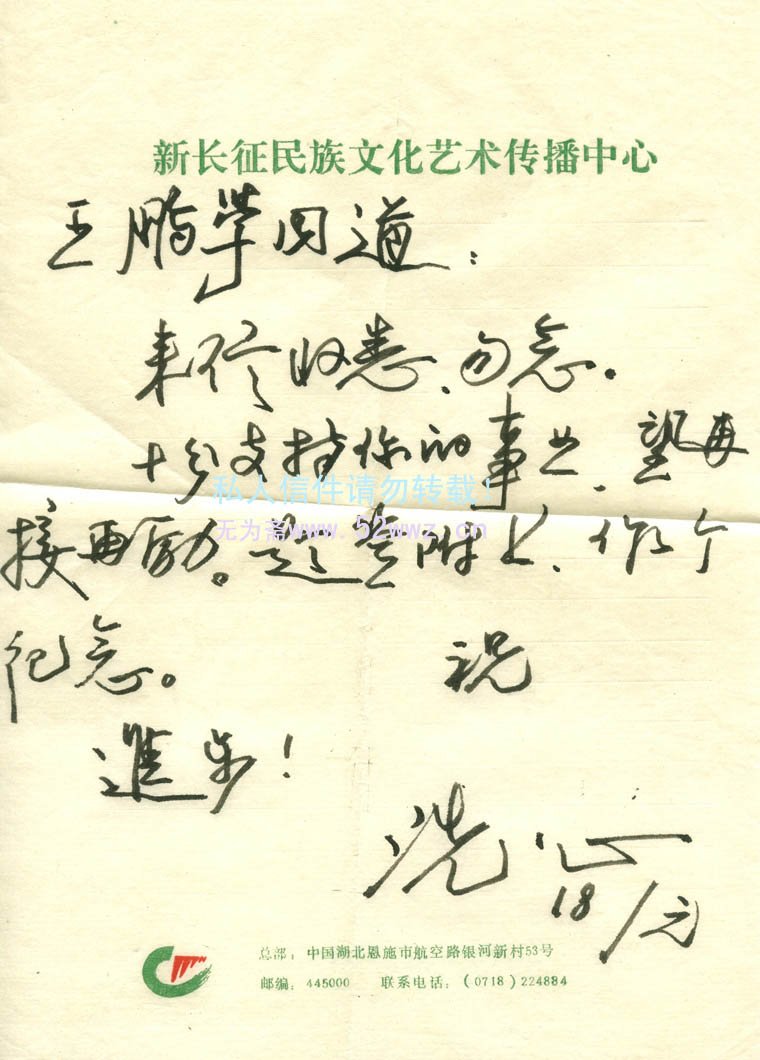 新长征民族文化艺术传播中心
王鹏学同道：
来信收悉、勿念。
十分支持你的事业、望再
私人信件请勿转载！
无为斋www.52wwz.cn
接再励。题签附上、作个
纪念。 祝
進步！
洗心
18/元
总部：中国湖北恩施市航空路银河新村53号
邮编：445000 联系电话：（0718）224884